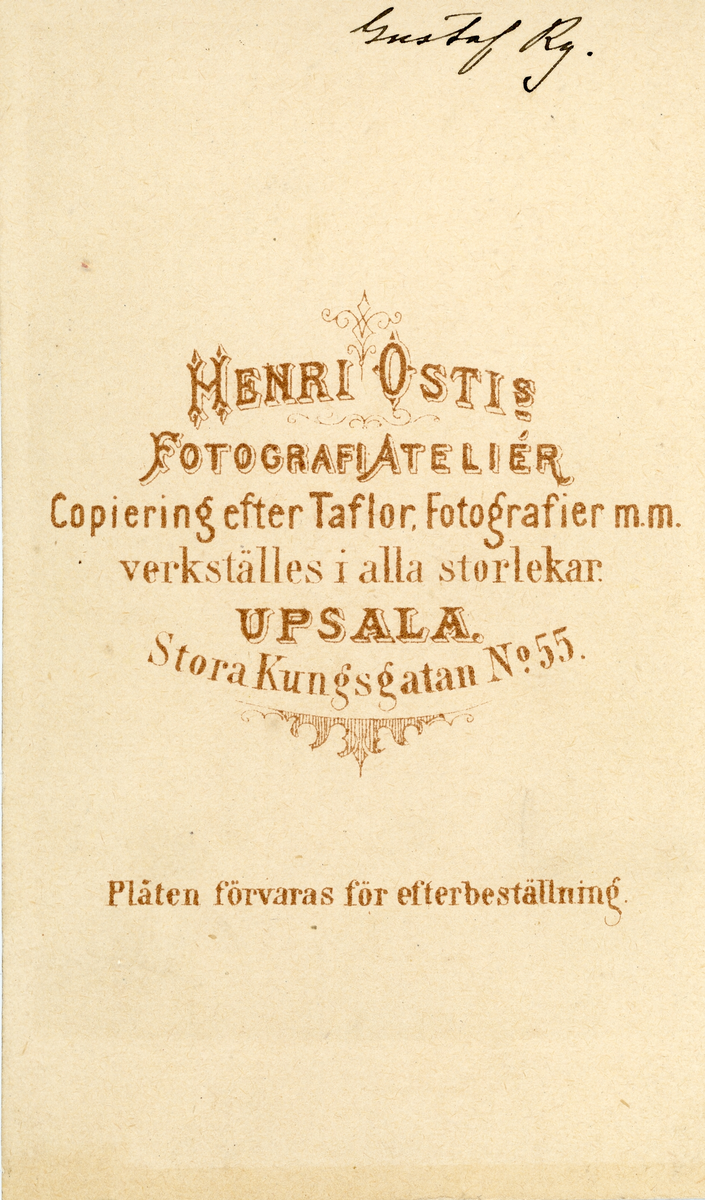 Gustaf Ry.
HENRI OSTIs
FOTOGRAFIATELIÉR
Copiering efter Taflor, Fotografier m.m.
verkställes i alla storlekar.
UPSALA.
Stora Kungsgatan No 55.
Plåten förvaras för efterbeställning.